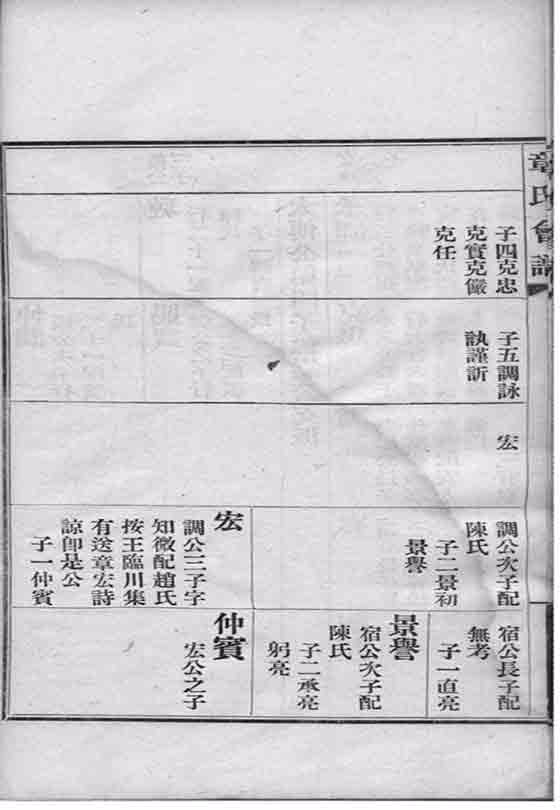 章氏會譜
子四克忠
克實克儼
克任
子五調詠
訙謹訢
宏
調公次子配
陳氏
子二景初
景譽
宏
調公三子字
知微配趙氏
按王臨川集
有送章宏詩
諒卽是公
子一仲賓
宿公長子配
無考
子一直亮
景譽
宿公次子配
陳氏
子二承亮
躬亮
仲賓
宏公之子